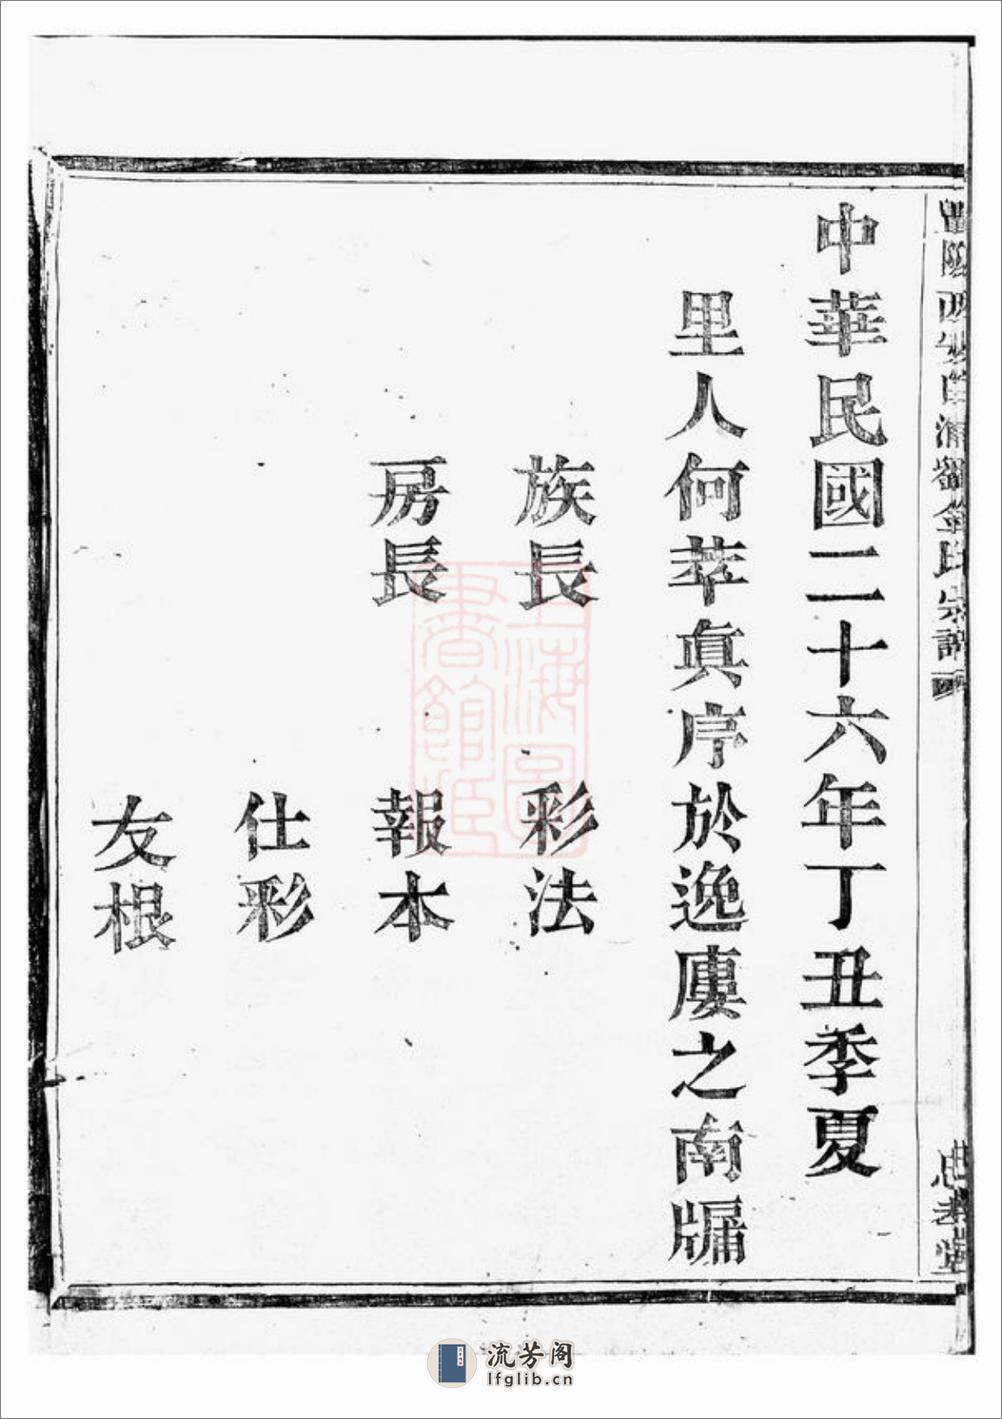 中華民國二十六年丁丑季夏
里人何萃真序於逸廔之南牖
族長 彩法
房長 報本
仕彩
友根
劉金氏宗譜
忠孝堂
上海圖書館藏
流芳阁
lfglib.cn